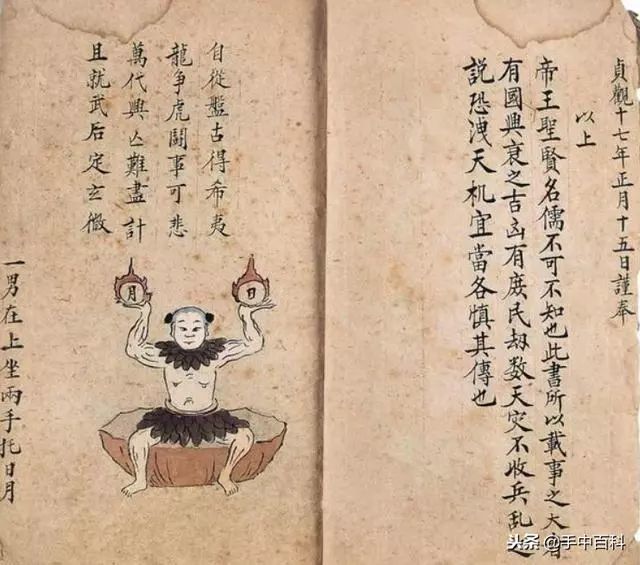 貞觀十七年正月十五日謹奉
以上
帝王聖賢名儒不可不知也此書所以載事之大者
有國興衰之吉凶有庶民劫数天灾不收兵乱之
説恐洩天机宜當各慎其傳也
自從盤古得希夷
龍爭虎鬪事可悲
萬代興亡難盡計
且就武后定玄微
月
日
一男在上坐兩手托日月
头条@手中百科